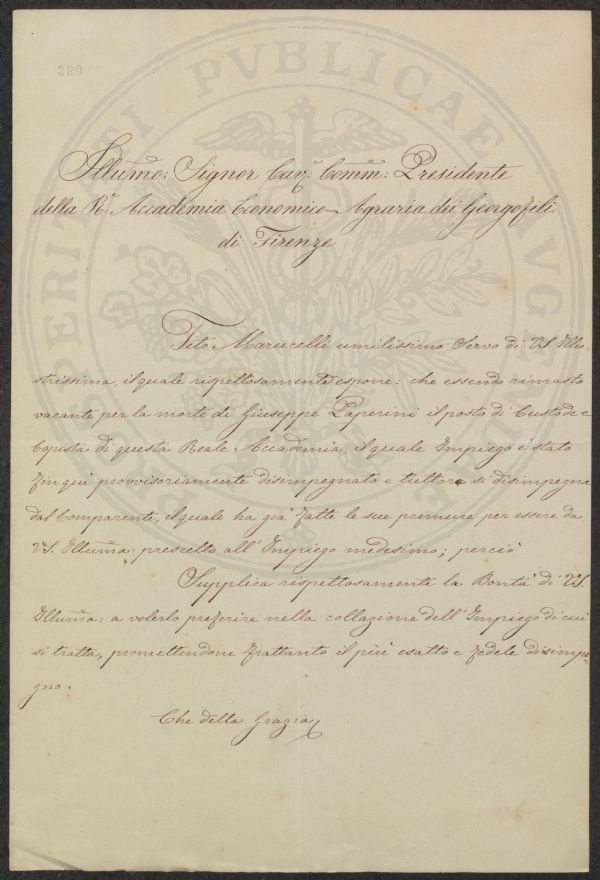 380
PROSPERITATI PVBLICAE AVGENDAE
Illummo: Signor Cav: Comm: Presidente
della R: Accademia Economico-Agraria dei Georgofili
di Firenze
Tito Marucelli umilissimo Servo di VS. Illu-
strissima, il quale rispettosamente espone: che essendo rimasto
vacante per la morte di Giuseppe Paperini il posto di Custode e
Copista di questa Reale Accademia, il quale Impiego è stato
fin quì provvisoriamente disimpegnato e tuttora si disimpegna
dal Comparente, il quale ha già fatte le sue premure per essere da
VS. Illumma: prescelto all'Impiego medesimo; perciò
Supplica rispettosamente la Bontà di VS.
Illumma: a volerlo preferire nella collazione dell'Impiego di cui
si tratta, promettendone frattanto il più esatto e fedele disimpe-
gno.
Che della Grazia